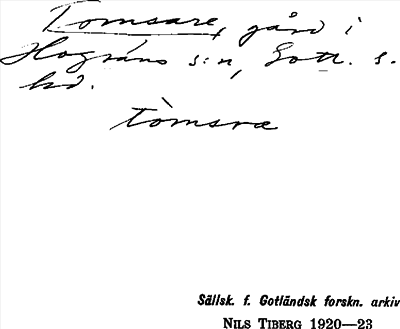 Tomsare, gård i
Hogräns s:n, Gotl. s.
hd.
tòmsræ
Sällsk. f. Gotländsk forskn. arkiv
NILS TIBERG 1920—23